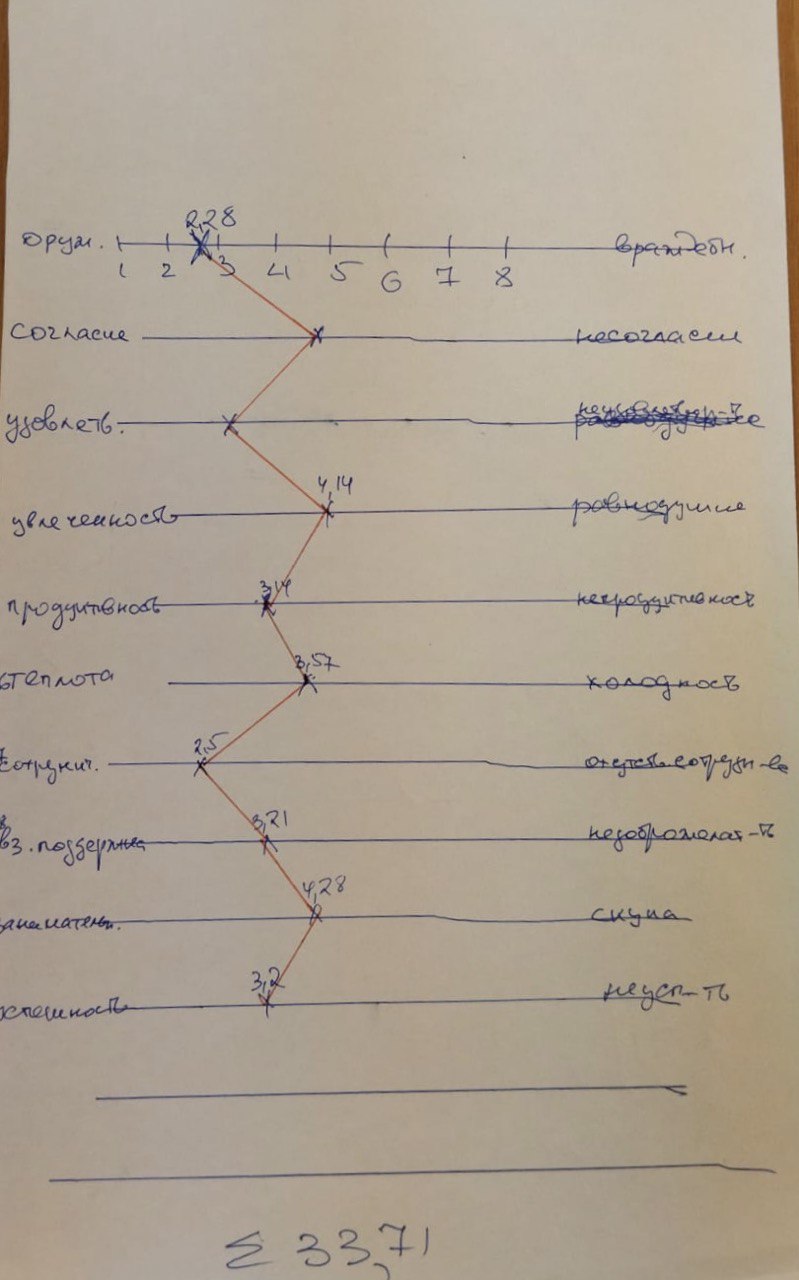 2,28
друж. враждебн.
1 2 3 4 5 6 7 8
согласие несогласия
удовлетв. неудовлетвор-ть
4,14
увлеченность равнодушие
3,14
продуктивность непродуктивность
3,57
теплота холодность
2,5
сотрунич. отсутств. сотрудн-ва
3,21
вз. поддержка недоброжелат-ть
4,28
заниматель. скука
3,2
успешность неусп-ть
Σ 33,71